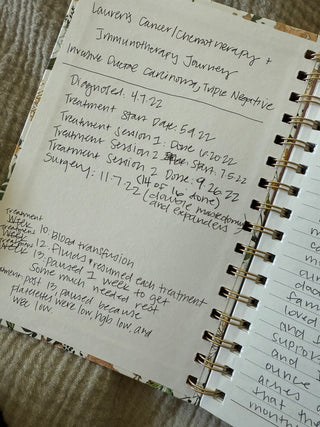 Lauren's Cancer/Chemotherapy +
Immunotherapy Journey
Invasive Ductal Carcinoma, Triple Negative
Diagnosed: 4.7.22
Treatment Start Date: 5.9.22
Treatment Session 1: Done 6.20.22
Treatment Session 2 Start: 7.5.22
Treatment Session 2 Done: 9.26.22
(14 of 16 done)
Surgery: 11.7.22 (double mastectomy
and expanders)
Treatment
Week 10: blood transfusion
Treatment
Week 12: fluids resumed each treatment
Treatment
Week 13: paused 1 week to get
some much needed rest
post 13, paused because
platelets were low, hgb low, and
wbc low.
fam
loved
and
suppor
and
ounce
aches
that the
month